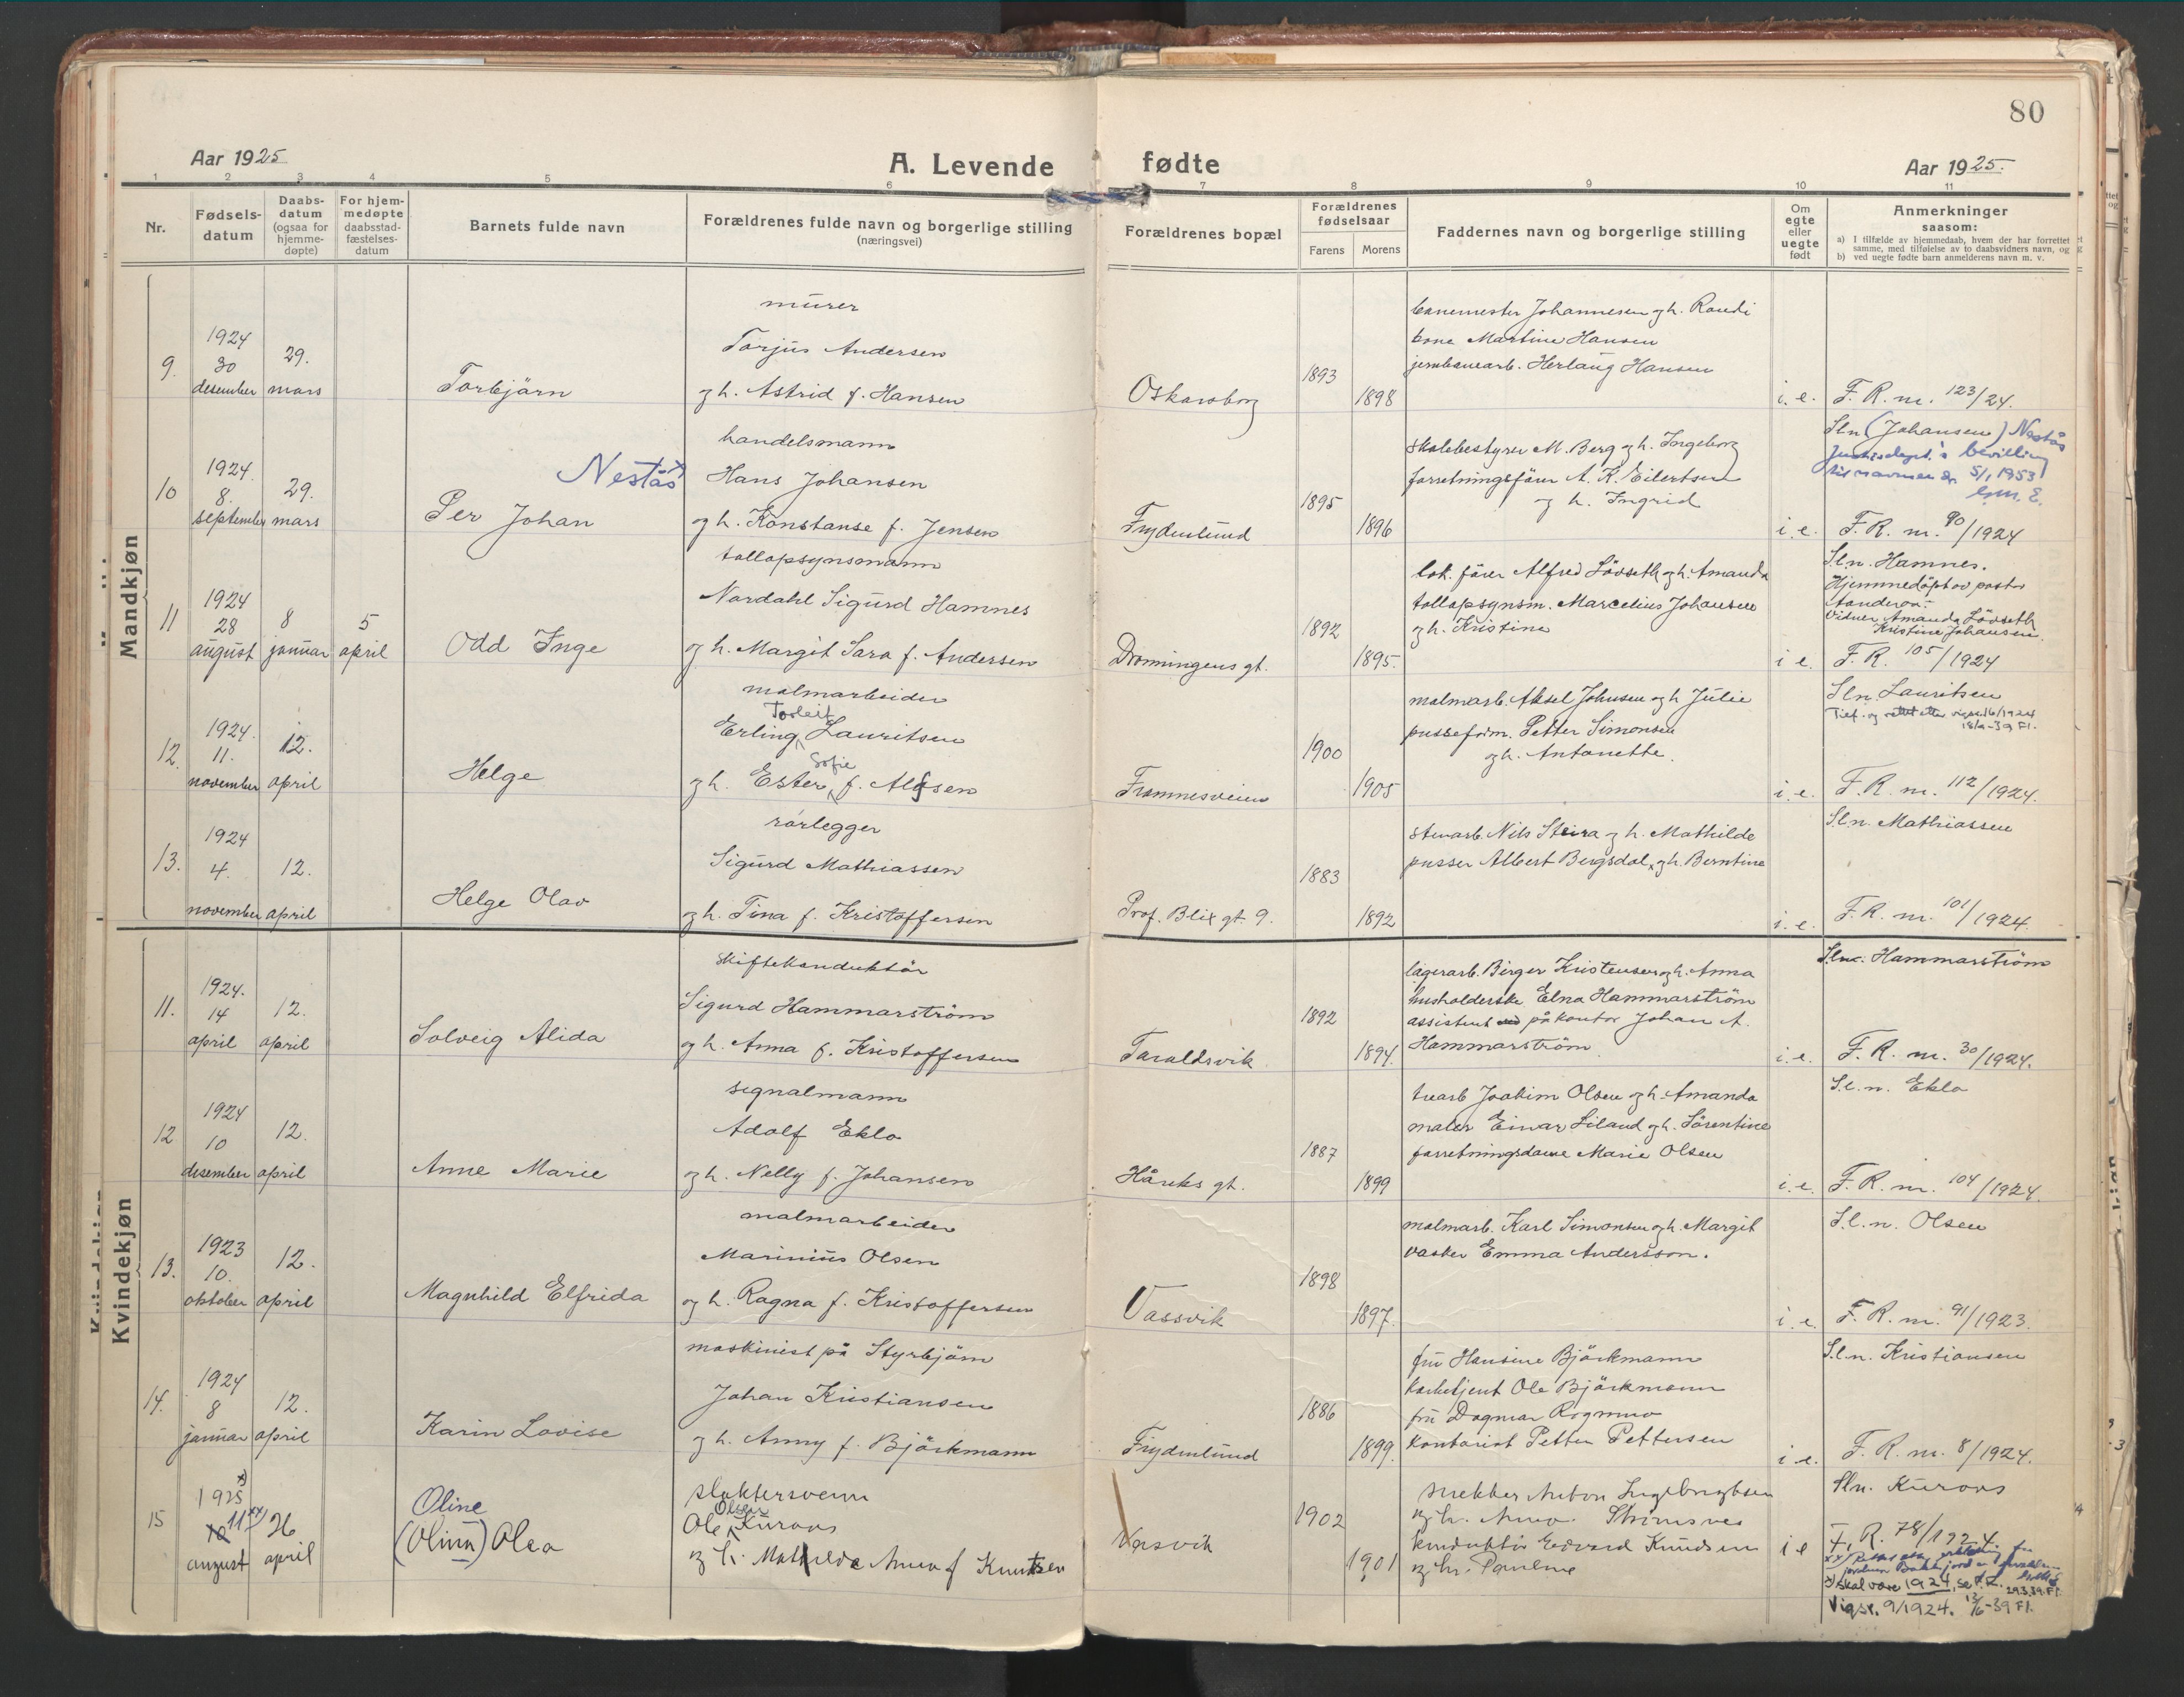 80
Aar 1925
A. Levende fødte
Aar 1925.
1 2 3 4 5 6 7 8 9 10 11
Nr.
Fødsels-
datum
Daabs-
datum
(ogsaa for
hjemme-
døpte)
For hjem-
medøpte
daabsstad-
fæstelses-
datum
Barnets fulde navn
Forældrenes fulde navn og borgerlige stilling
(næringsvei)
Forældrenes bopæl
Forældrenes
fødselsaar
Farens Morens
Faddernes navn og borgerlige stilling
Om
egte
eller
uegte
født
Anmerkninger
saasom:
a) I tilfælde av hjemmedaab, hvem der har forrettet
samme, med tilføielse av to daabsvidners navn, og
b) ved uegte fødte barn anmelderens navn m. v.
Mandkjøn
9.
1924
30
desember
29.
mars
Torbjärn
murer
Torjus Andersen
og h. Astrid f. Hansen
Oskarsborg
1893
1898
banemester Johannesen og h. Randi
kone Martine Hansen
jernbanearb. Herlaug Hansen
i. e.
F. R. nr. 123/24.
10
1924.
8.
september
29.
mars
Nestås
Per Johan
handelsmann
Hans Johansen
og h. Konstanse f. Jensen
Frydenlund
1895
1896
skolebestyrer M. Berg og h. Ingeborg
forretningsfører A. K. Eilertsen
og h. Ingrid
i. e.
Sln (Johansen) Nestås
Justisdept.s bevilling
til navnen av 5/1 1953
F. R. nr. 90/1924
11
1924
28
august
8
januar
5
april
Odd Inge
tollopsynsmann
Nordahl Sigurd Hamnes
og h. Margit Sara f. Andersen
Dronningens gt.
1892
1895.
lok. fører Alfred Lövseth og h. Amanda
tollopsynsm. Marcelius Johansen
og h. Kristine
i e.
Sln. Hamnes.
Hjemmedöpt av pastor
Vidner Amanda Lövseth
Kristine Johansen.
F. R. 105/1924
12.
1924.
11.
november
12.
april
Helge
malmarbeider
Torleif
Erling Lauritsen
Sofie
og h. Ester f. Alfsen
Framnesveien
1900
1905
malmarb. Aksel Johnsen og h Julie
pusseform. Petter Simonsen
og h. Antonette.
i. e.
Sln Lauritsen
Tilf. og rettet etter vigselb/1924
18/2-39 Fl.
F. R. nr. 112/1924.
13.
1924
4.
november
12.
april
Helge Olav
rørlegger
Sigurd Mathiassen
og h. Tina f. Kristoffersen
Prof. Blix gt. 9.
1883
1892
stenarb. Nils Steira og h. Mathilde
pusser Albert Bergsdal, og h. Berntine
i. e.
Sln. Mathiassen
F. R. nr. 101/1924.
Kvindekjøn
11.
1924.
14
april
12.
april
Solveig Alida
skiftekonduktör
Sigurd Hammarström
og h. Anna f. Kristoffersen
Taraldsvik
1892
1894.
lagerarb. Birger Kristensen og h. Anna
husholderske Elna Hammarström
assistent på kontor Johan A.
Hammarström
i. e.
Slnc. Hammarström
F. R. nr. 30/1924.
12
1924
10
desember
12.
april
Anne Marie
signalmann
Adolf Eklo
og h. Nelly f. Johansen
Håreks gt.
1887
1899
trearb Joakim Olsen og h. Amanda
maler Einar Liland og h. Sörentine
forretningsdame Marie Olsen
i. e.
S.l.n. Eklo
F. R. nr. 104/1924.
13.
1923
10.
oktober
12.
april
Magnhild Elfrida
malmarbeider
Marinius Olsen
og h. Ragna f. Kristoffersen
Vassvik
1898
1897.
malmarb. Karl Simonsen og h. Margit
vasker Emma Andersson.
i. e.
S.l.n. Olsen
F. R. nr. 91/1923.
14.
1924
8
januar
12.
april
Karin Lovise
maskinist på Styrbjörn
Johan Kristiansen
og h. Anny f. Björkmann
Frydenlund
1886
1899.
fru Hansine Björkmann
Ole Björkmann
fru Dagmar Rogmno
kontorist Petter Pettersen
i e.
S.l.n. Kristiansen
F. R. nr. 8/1924.
15
x)
1925
10 11 xx)
august
26
april
Oline
(Olium) Olea
slaktersvenn
Olsen
Ole Kurons
og h. Mathilde Anna f Knutsen
Vasvik
1902
1901
snekker Anton Ingebrigtsen
og h. Anna Strimsnes
konduktör Edvard Knudsen
og h. Pauline
i e
Sln. Kurons
F. R. 78/1924
x) skal være 1924, se F. R. 29.3.39. Fl.
Vigsr. 9/1924. 13/6-39 Fl.